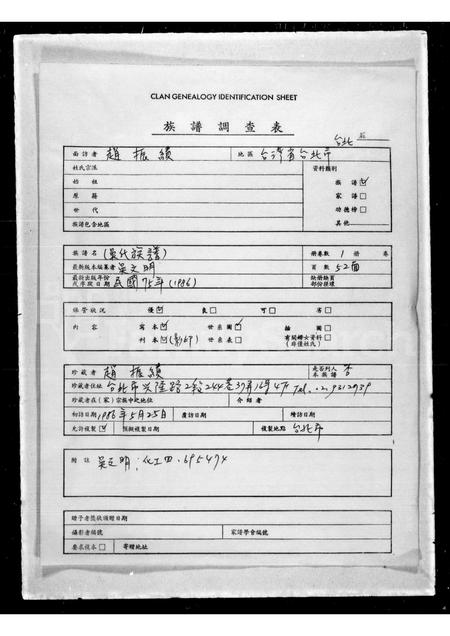 CLAN GENEALOGY IDENTIFICATION SHEET
族譜調查表
台北
面訪者 趙振績 地區 台灣省台北市
姓氏宗派 資料類別
始祖 族譜☑
原籍 家譜□
世代 功德榜□
族譜包含地區 其他
族譜名 (吳氏族譜) 冊卷數 1 冊 卷
最新版本編纂者 吳文明 頁數 52面
最新出版年份或序跋日期 民國75年(1986) 缺冊缺頁部份註標
保管狀況 優☑ 良□ 可□ 劣□
內容 寫本☑ 世系圖☑ 插圖□
刊本☑(影印) 世系表□ 有關婦女資料□ (非僅姓氏)
珍藏者 趙振績 是否列入本族譜 否
珍藏者住址 台北市興隆路2段244巷37弄16號4F Tel. 02.9312939
珍藏者在(家)宗族中地位 介紹者
初訪日期 1986年5月25日 覆訪日期 續訪日期
允許複製☑ 預擬複製日期 複製地點 台北市
附註 吳文明:化工四.695474
贈予者獎狀頒贈日期
攝影者編號 家譜學會編號
要求複本□ 寄贈地址